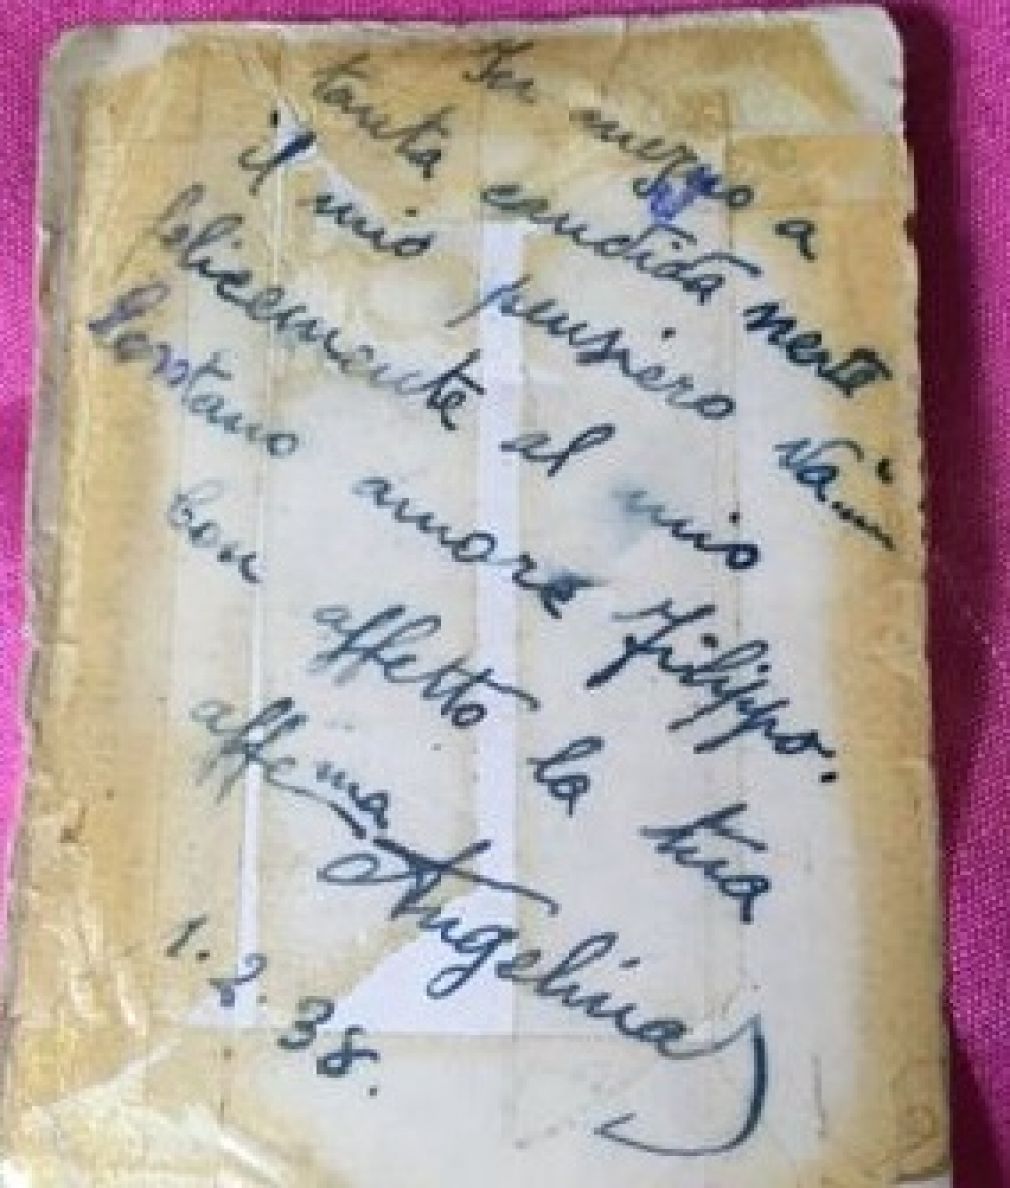 In mezzo a
tanta candida neve
il mio pensiero và....
felicemente al mio
lontano amore Filippo.
Con affetto la tua
affema Angelina
1.2.38.